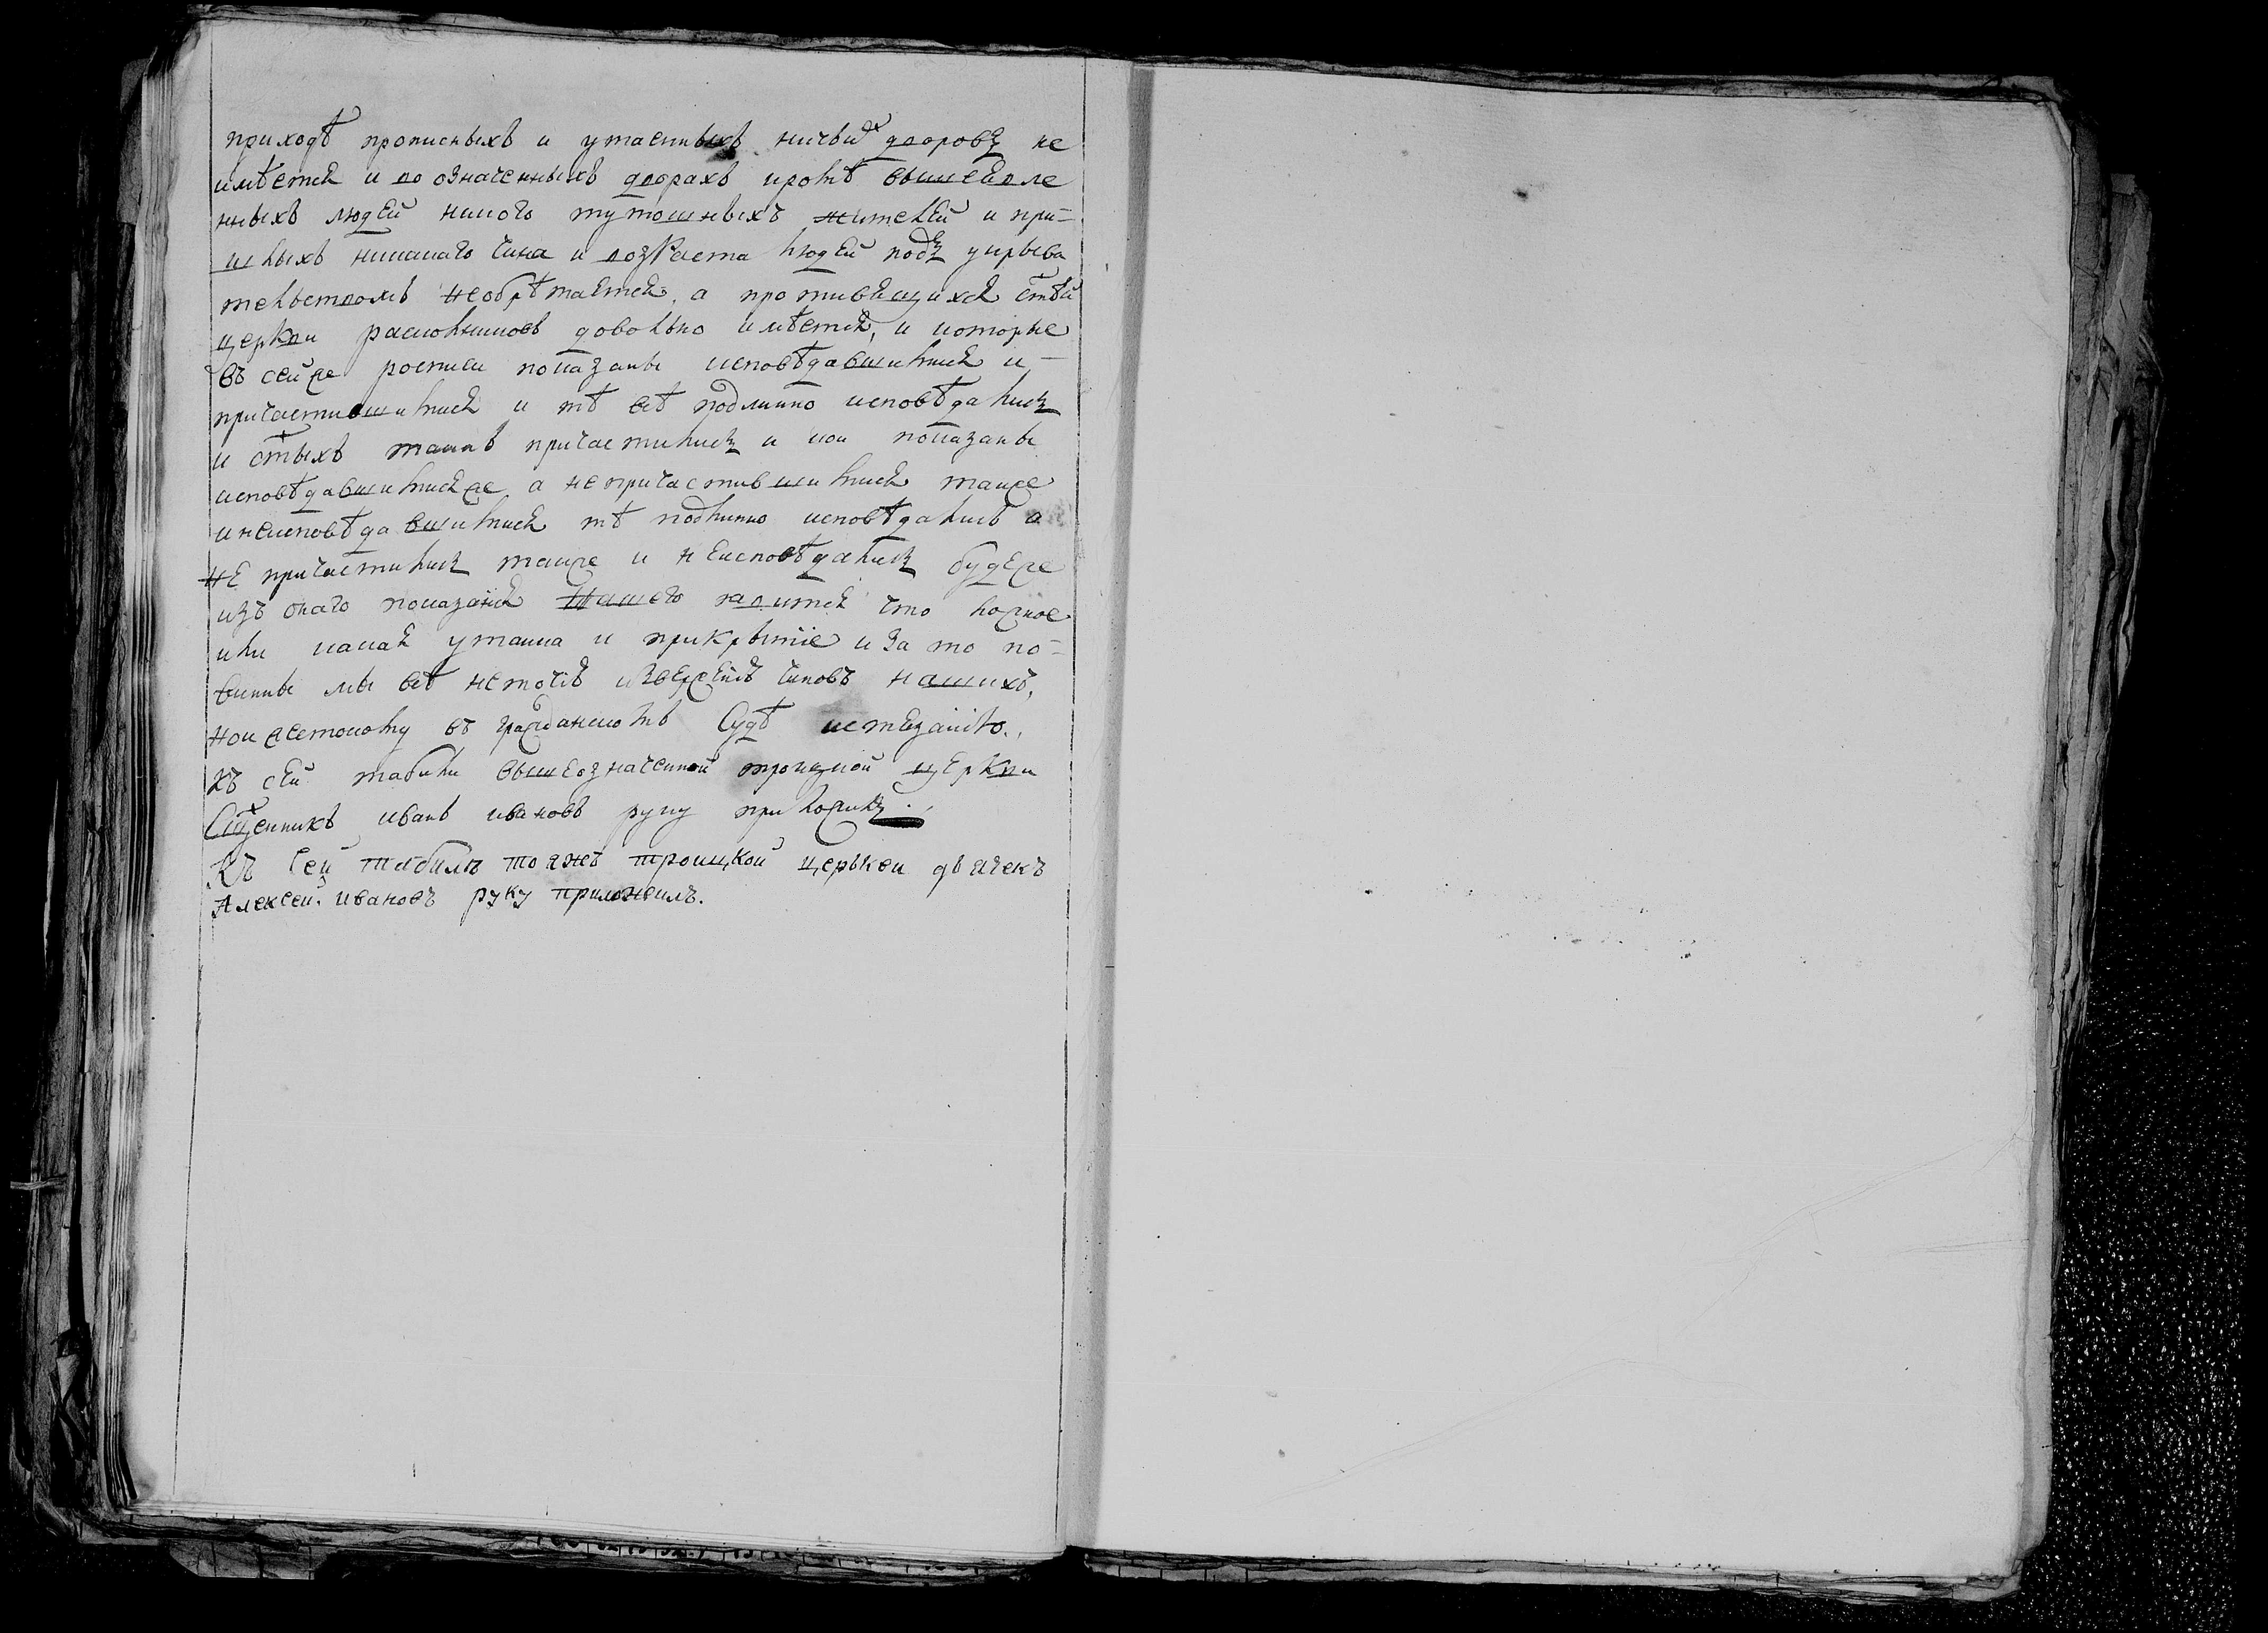 приходѣ прописныхъ и утаенныхъ ничьихъ дворовъ не
имѣется и во означенныхъ дворахъ кромѣ вышеявле
нныхъ людей никого тутошныхъ жителей и при=
шлыхъ никакаго чина и возраста людей подъ укрыва
телствомъ необрѣтается, а противящихся стѣй
церкви раскольниковъ доволно имѣется, и которые
въ сейже росписи показаны исповѣдавшимися и
причастившимися и тѣ всѣ подлинно исповѣдались
и стыхъ таинъ причастились и кои показаны
исповѣдавшимисяже а непричастившимися також
инеисповѣдавшимися тѣ подлинно исповѣдались а
не причастились також и неисповѣдались будеже
изъ онаго показания нашего явится что ложное
или какая утайка и прикрытие и за то по=
винны мы всѣ неточию извержению чиновъ нашихъ,
нои жестокому въ гражданскомъ судѣ истязанию.
Къ сей табели вышеозначенной троицкой церкви
Сщенникъ иванъ ивановъ руку приложилъ.
Къ сей табилѣ тояжъ троицкой церькви дьячекъ
Алексей ивановъ руку приложилъ.